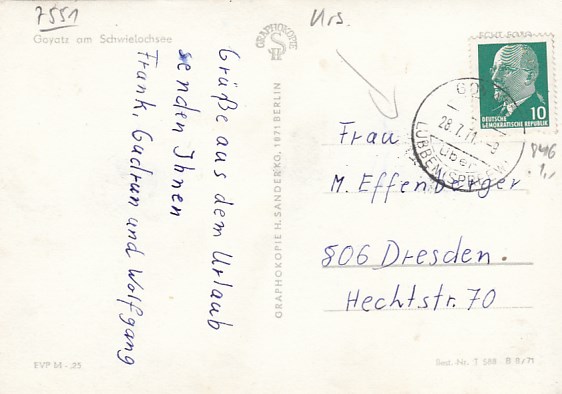 7551
Goyatz am Schwielochsee
Urs.
Grüße aus dem Urlaub
senden Ihnen
Frank, Gudrun und Wolfgang
GRAPHOKOPIE
GRAPHOKOPIE H. SANDER KG, 1071 BERLIN
ECHT FOTO
10
DEUTSCHE
DEMOKRATISCHE REPUBLIK
28.7.71.-8
über
LÜBBEN (SPREEW)
Frau
M. Effenberger
806 Dresden.
Hechtstr. 70
EVP M -,25
Best.-Nr. T 588 B 8/71